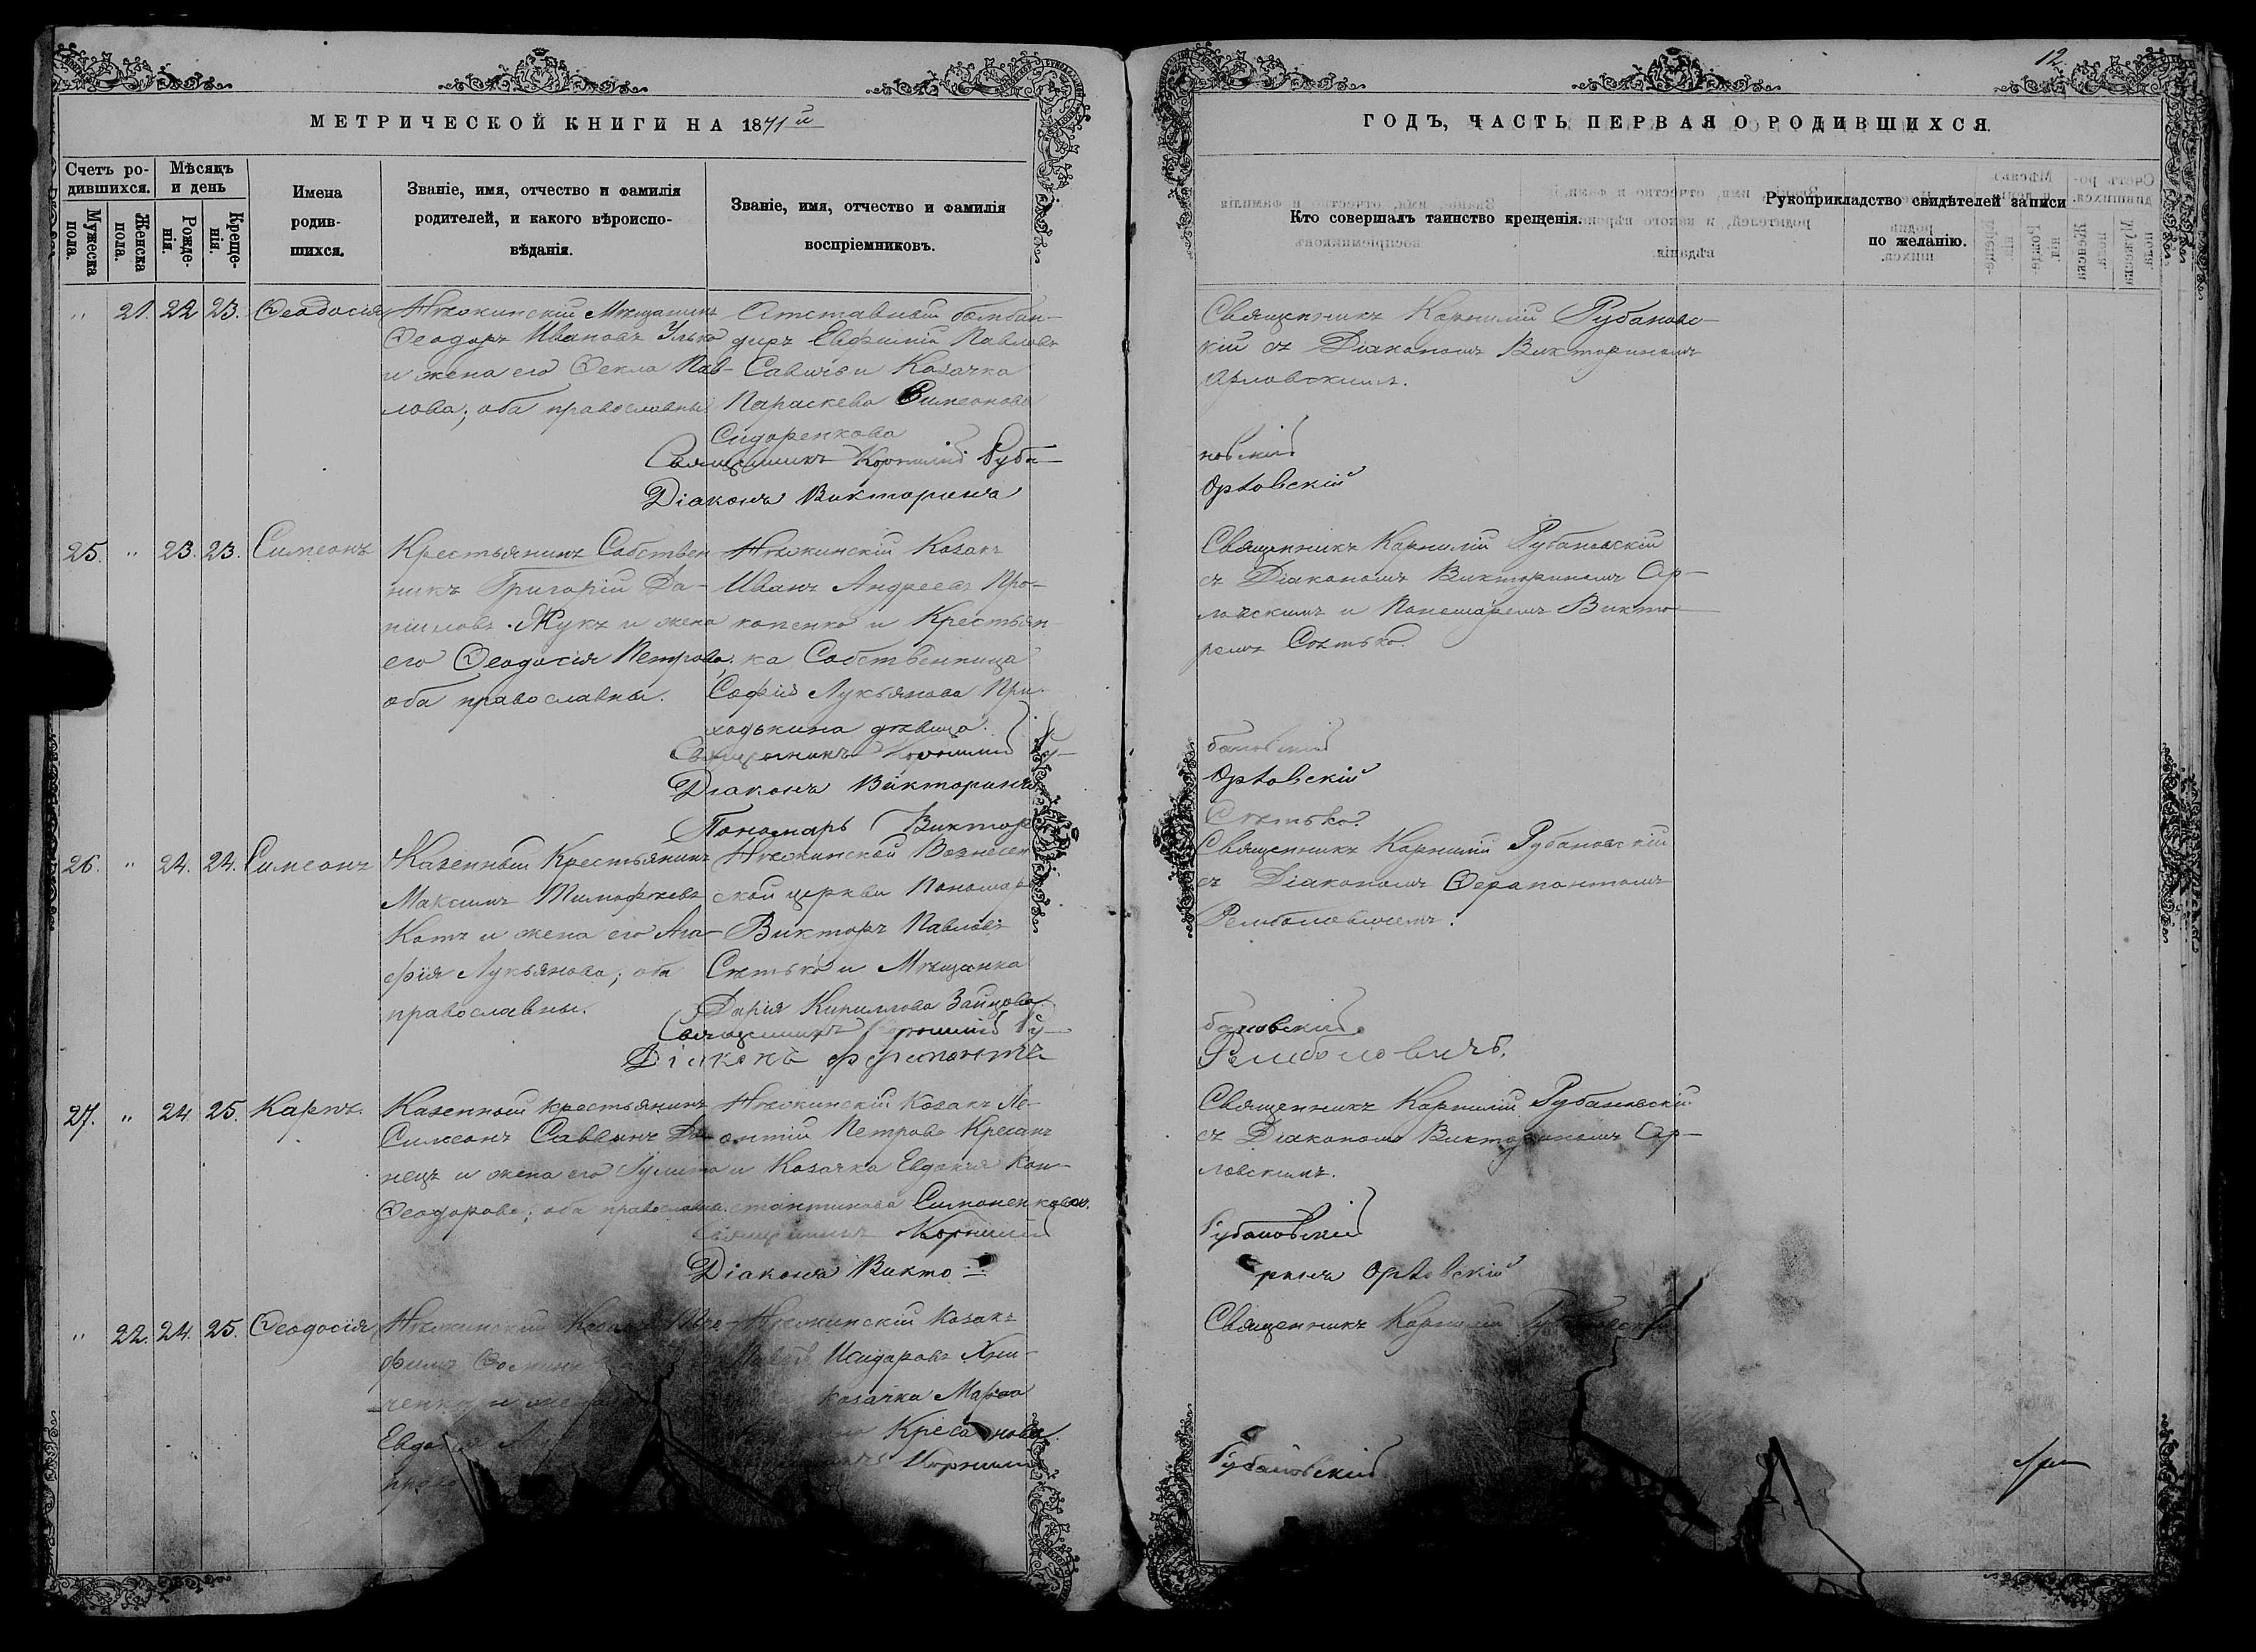 12.
МЕТРИЧЕСКОЙ КНИГИ НА 1871й
ГОДЪ, ЧАСТЬ ПЕРВАЯ О РОДИВШИХСЯ.
Счетъ родившихся.
Мужеска пола.
Женска пола.
Мѣсяцъ и день
Рожденія.
Крещенія.
Имена
родив-
шихся.
Званіе, имя, отчество и фамилія
родителей, и какого вѣроиспо-
вѣданія.
Званіе, имя, отчество и фамилія
воспріемниковъ.
Кто совершалъ таинство крещенія.
Рукоприкладство свидѣтелей записи
по желанію.
" 21. 22 23. Ѳеодосія
Нѣжинскій Мѣщанинъ
Ѳеодоръ Ивановъ Улько
и жена его Ѳекла Пав-
лова; оба православны
Отставный бомбан-
диръ Евфимій Павловъ
Савичъ и Козачка
Параскева Симеонова
Сидоренкова
Священникъ Корнилій Рубановс-
кій съ Діакономъ Викториномъ
Орловскимъ.
Священникъ Корнилій Руба-
новскій
Діаконъ Викторинъ
Орловскій
25. " 23. 23. Симеонъ
Крестьянинъ Собствен
никъ Григорій Да-
ніиловъ Жукъ и жена
его Ѳеодосія Петрова.
оба православны.
Нѣжинскій Козакъ
Иванъ Андреевъ Про-
копенко и Крестьян
ка Собственница
Софія Лукьянова При-
ходькина дѣвица.
Священникъ Корнилій Рубановскій
съ Діакономъ Викториномъ Ор-
ловскимъ и Пономаремъ Викто-
ромъ Сѣтько.
Священникъ Корнилій Ру-
бановскій
Діаконъ Викторинъ
Орловскій
Пономарь Викторъ
Сѣтько.
26. " 24. 24. Симеонъ
Казенный Крестьянинъ
Максимъ Тимофѣевъ
Котъ и жена его Ага-
фія Лукьянова; оба
православны.
Нѣжинской Вознесен
ской церкви Пономарь
Викторъ Павловъ
Сѣтько и Мѣщанка
Дарія Кириллова Зайцова
Священникъ Корнилій Рубановскій
съ Діакономъ Ѳерапонтомъ
Рембаловичемъ.
Священникъ Корнилій Ру-
бановскій.
Діаконъ Ферапонтъ
Рембаловичъ.
27. " 24 25. Карпъ.
Казенный крестьянинъ
Симеонъ Саввинъ
нецъ и жена его Іулита
Ѳеодорова; оба православны.
Нѣжинскій Козакъ Ле-
онтій Петровъ Кресанъ
и Козачка Евдокія Кон-
стантинова Симоненкова.
Священникъ Корнилій Рубановскій
съ Діакономъ Викториномъ Ор-
ловскимъ.
Священникъ Корнилій
Рубановскій
Діаконъ Викто-
ринъ Орловскій
" 22. 24. 25. Ѳеодосія
Нѣжинскій Козакъ
ченко и жена
Евдо
право
Нѣжинскій Козакъ
Исидоровъ
козачка Марѳа
Кресанова
Священникъ Корнилій Рубановскій
Корнилій
Рубановскій